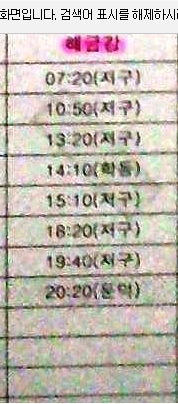 화면입니다. 검색어 표시를 해제하시려
해금강
07:20(저구)
10:50(저구)
13:20(저구)
14:10(학동)
15:10(저구)
18:20(저구)
19:40(저구)
20:20(둔덕)